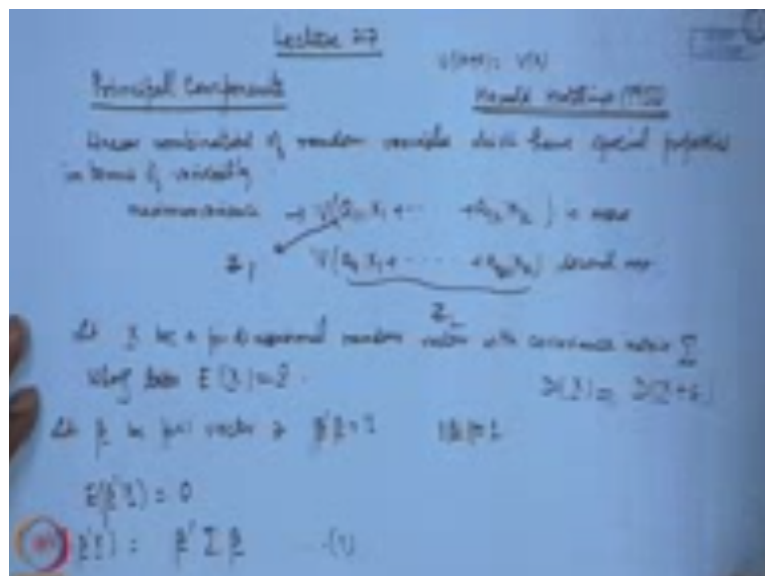 Lecture 27
V(X+c) = V(X)
Principal Components
Harold Hotelling (1933)
Linear combinations of random variables which have special properties
in terms of variability
maximum variance → V(a₁₁X₁ + ⋯ + X ) → max
Z₁ V( X₁ + ⋯ + ) second max
Z₂
Let X be a p-dimensional random vector with covariance matrix Σ
wlog take E(X) = 0.
D(X) = D(X+c)
Let β be p×1 vector ∋ β'β = 1 ||β|| = 1
E(β'X) = 0
β'X) = β' Σ β ...(1)